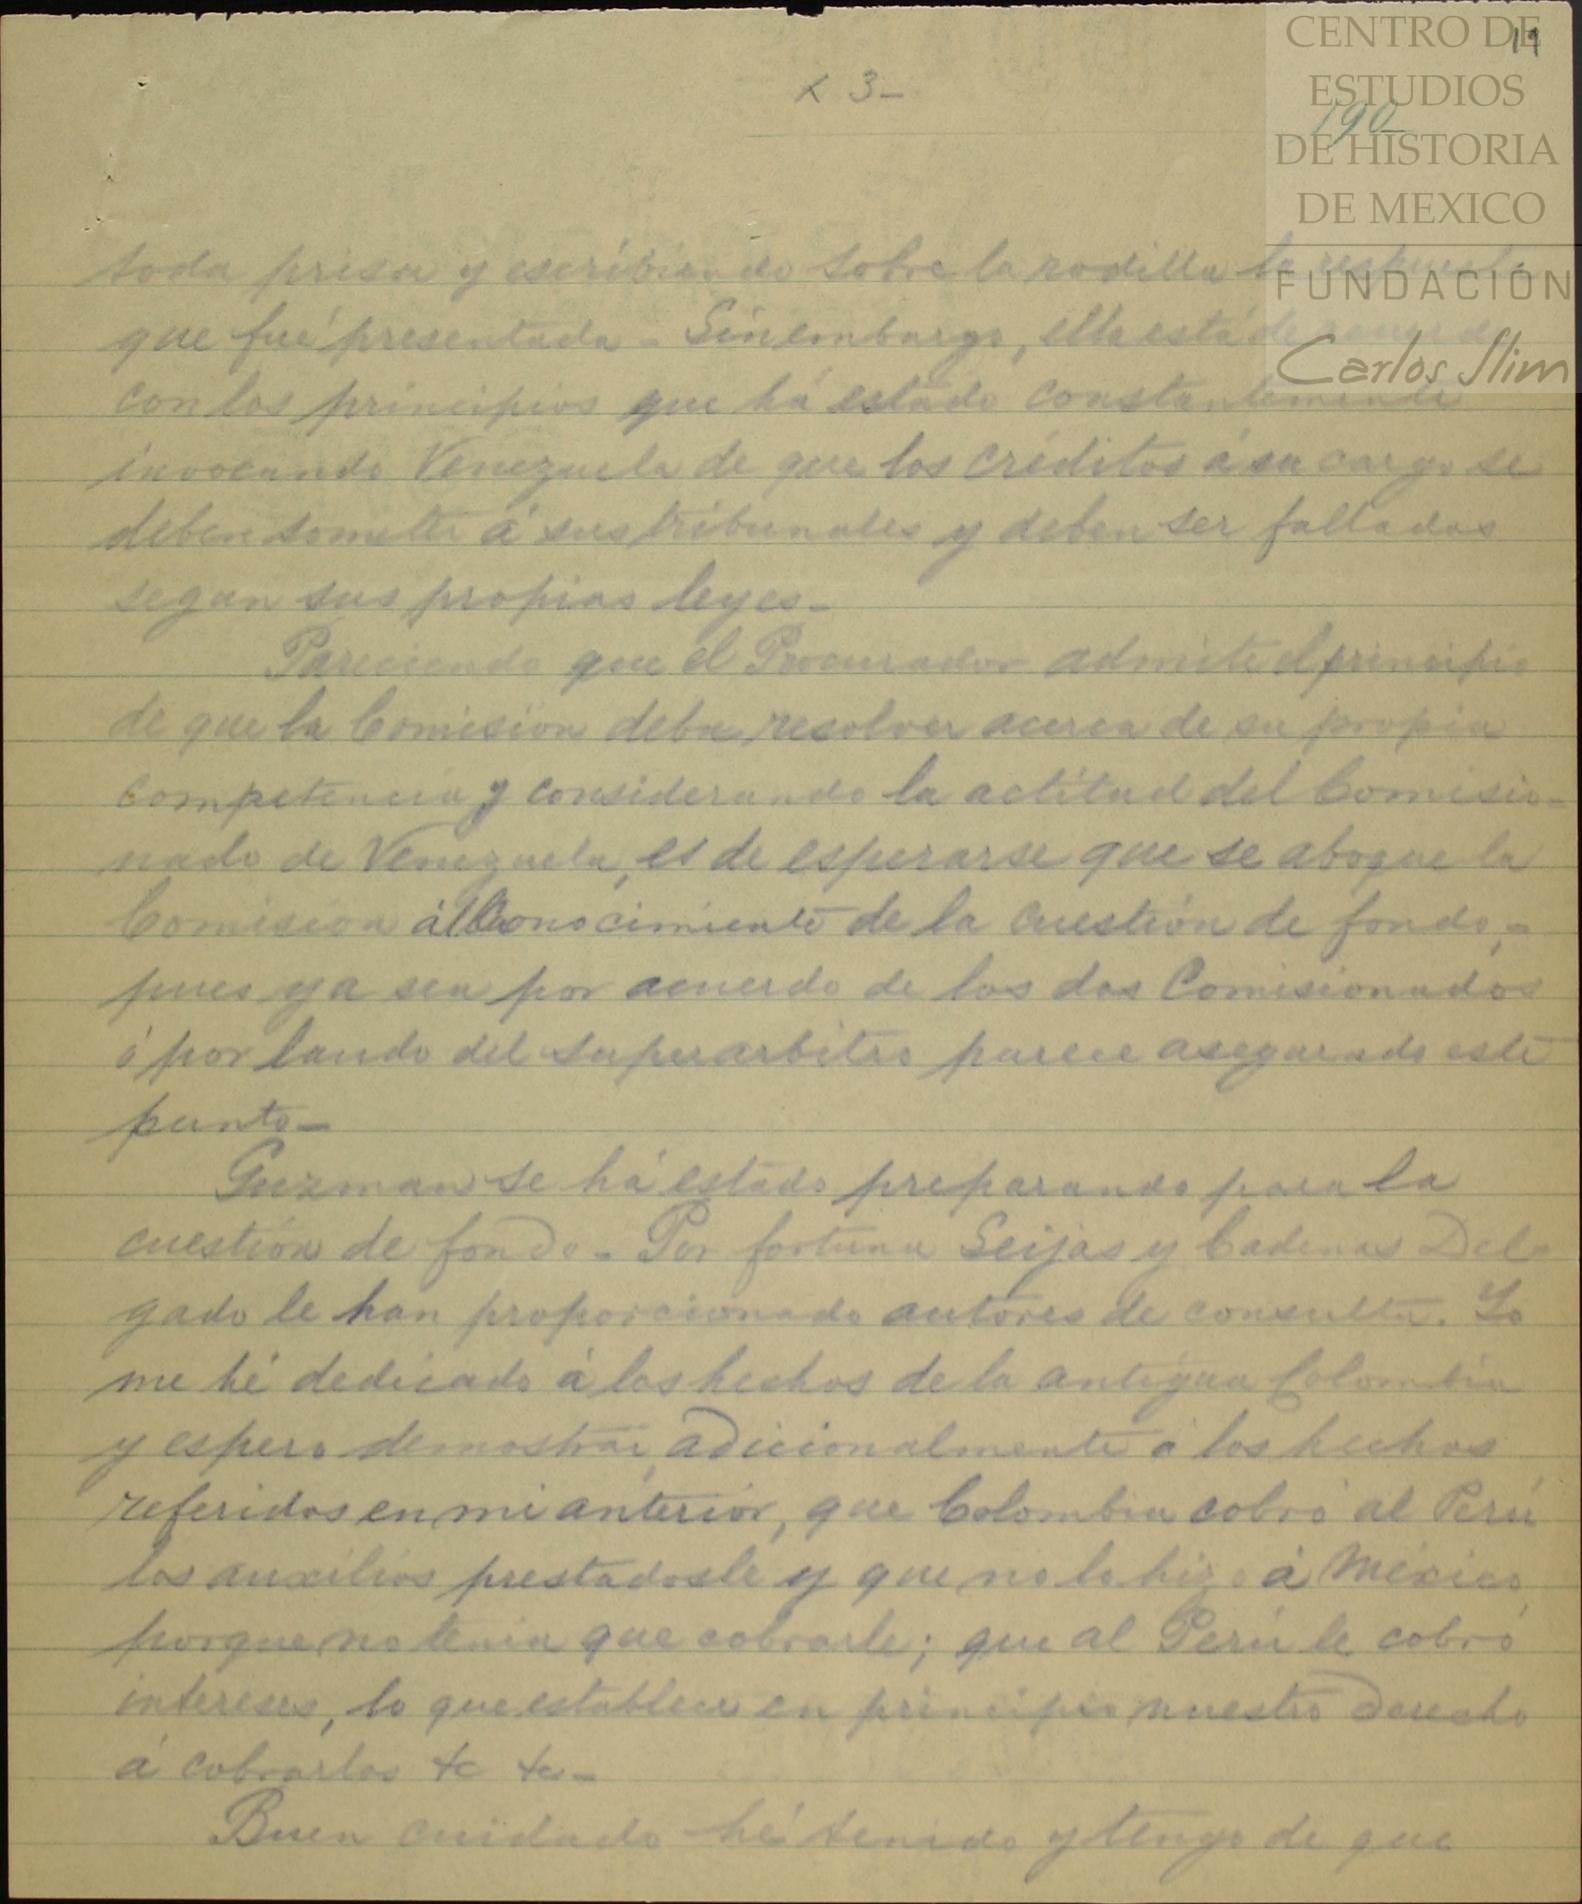 19
x 3-
190
CENTRO DE
ESTUDIOS
DE HISTORIA
DE MEXICO
FUNDACIÓN
Carlos Slim
toda prisa y escribiendo sobre la rodilla la respuesta
que fué presentada - Sinembargo, ella está de acuerdo
con los principios que há estado constantemente
invocando Venezuela de que los créditos á su cargo se
deben someter á sus tribunales y deben ser fallados
segun sus propias leyes -
Pareciendo que el Procurador admite el principio
de que la Comisión deba resolver acerca de su propia
competencia y considerando la actitud del Comisio-
nado de Venezuela, es de esperarse que se aboque la
Comision al conocimiento de la cuestión de fondo, -
pues ya sea por acuerdo de los dos Comisionados
ó por laudo del superarbitro parece asegurado este
punto -
Guzman se há estado preparando para la
cuestión de fondo - Por fortuna Seijas y Cadenas Del-
gado le han proporcionado autores de consulta. Yo
me hé dedicado á los hechos de la antigua Colombia
y espero demostrar, adicionalmente á los hechos
referidos en mi anterior, que Colombia cobró al Perú
los auxilios prestadosle y que no lo hizo á México
porque no tenia que cobrarle; que al Perú le cobró
intereses, lo que establece en principio nuestro derecho
á cobrarlos &c &c -
Buen cuidado hé tenido y tengo de que